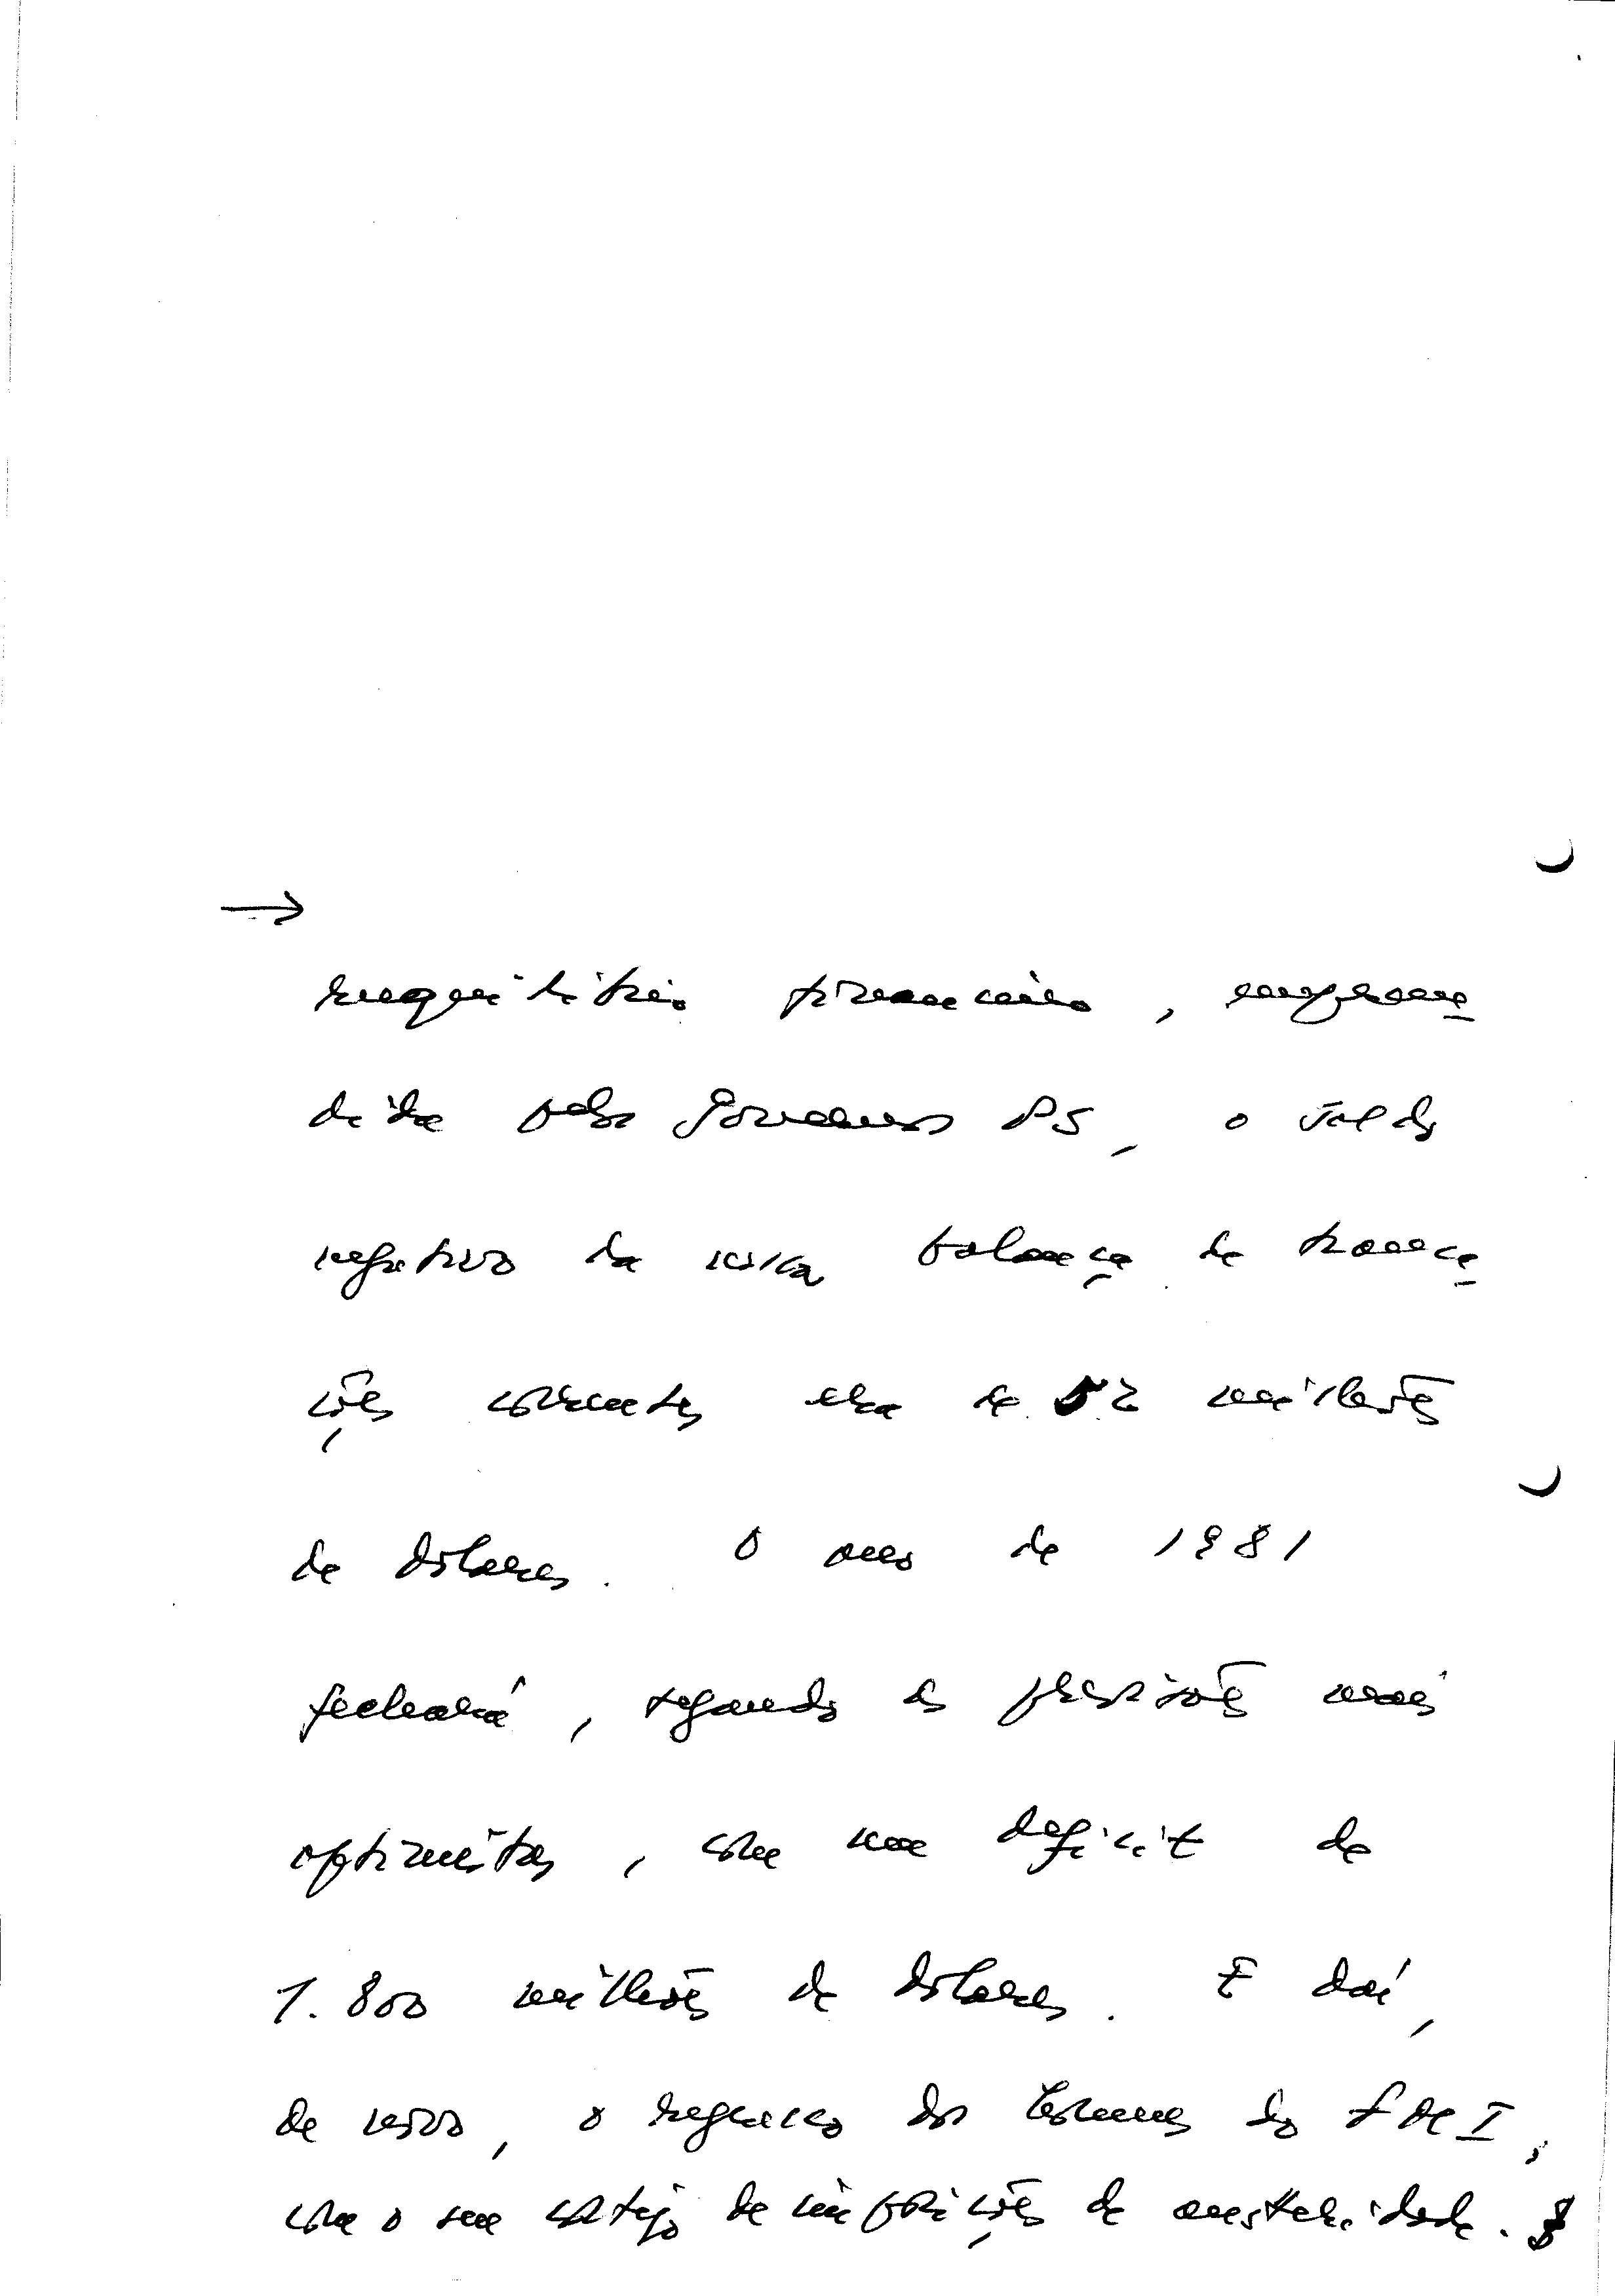 →
reequilíbrio financeiro, empreen
dida pelo Governo PS, o saldo
negativo da nossa balança de transac
ções correntes era de 52 milhões
de dólares. O ano de 1981
fechará, segundo as previsões mais
optimistas, com um deficit de
1.800 milhões de dólares. E daí,
de novo, o regresso dos homens do FMI,
com o seu cortejo de imposições de austeridade.